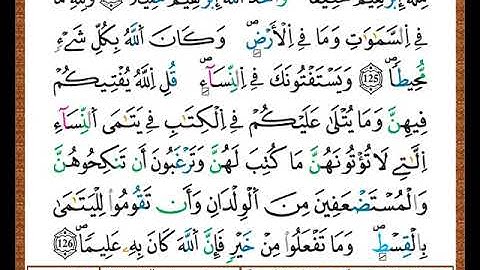 مِلَّةَ إِبْرَٰهِيمَ حَنِيفًا وَاتَّخَذَ اَللَّهُ إِبْرَٰهِيمَ خَلِيلًا وَلِلهِ مَا
فِے اِلسَّمَٰوَٰتِ وَمَا فِے اِلْأَرْضِ وَكَانَ اَللَّهُ بِكُلِّ شَےْءٍ
مُّحِيطًا 125 وَيَسْتَفْتُونَكَ فِے اِلنِّسَآءِ قُلِ اِللَّهُ يُفْتِيكُمْ
فِيهِنَّ وَمَا يُتْلَىٰ عَلَيْكُمْ فِے اِلْكِتَٰبِ فِے يَتَٰمَى اَلنِّسَآءِ
اِلَّٰتِے لَا تُؤْتُونَهُنَّ مَا كُتِبَ لَهُنَّ وَتَرْغَبُونَ أَن تَنكِحُوهُنَّ
وَالْمُسْتَضْعَفِينَ مِنَ اَلْوِلْدَٰنِ وَأَن تَقُومُواْ لِلْيَتَٰمَىٰ
بِالْقِسْطِ وَمَا تَفْعَلُواْ مِنْ خَيْرٍ فَإِنَّ اَللَّهَ كَانَ بِهِۦ عَلِيمًا 126